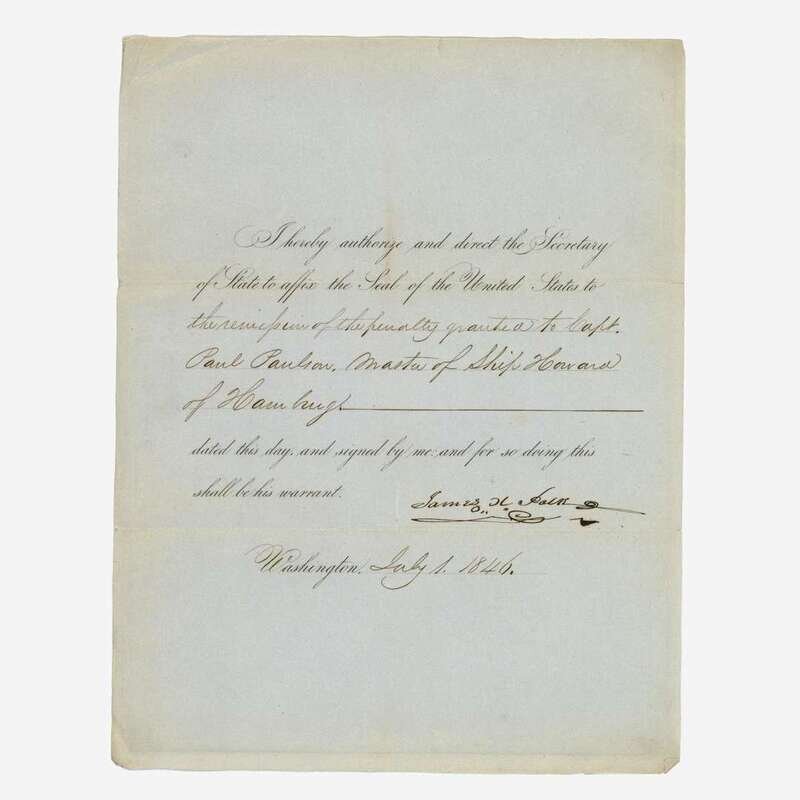 I hereby authorize and direct the Secretary
of State to affix the Seal of the United States to
the remission of the penalty granted to Capt.
Paul Paulson, Master of Ship Howard
of Hamburg.
dated this day, and signed by me: and for so doing this
shall be his warrant.
James K. Polk
Washington, July 1. 1846.